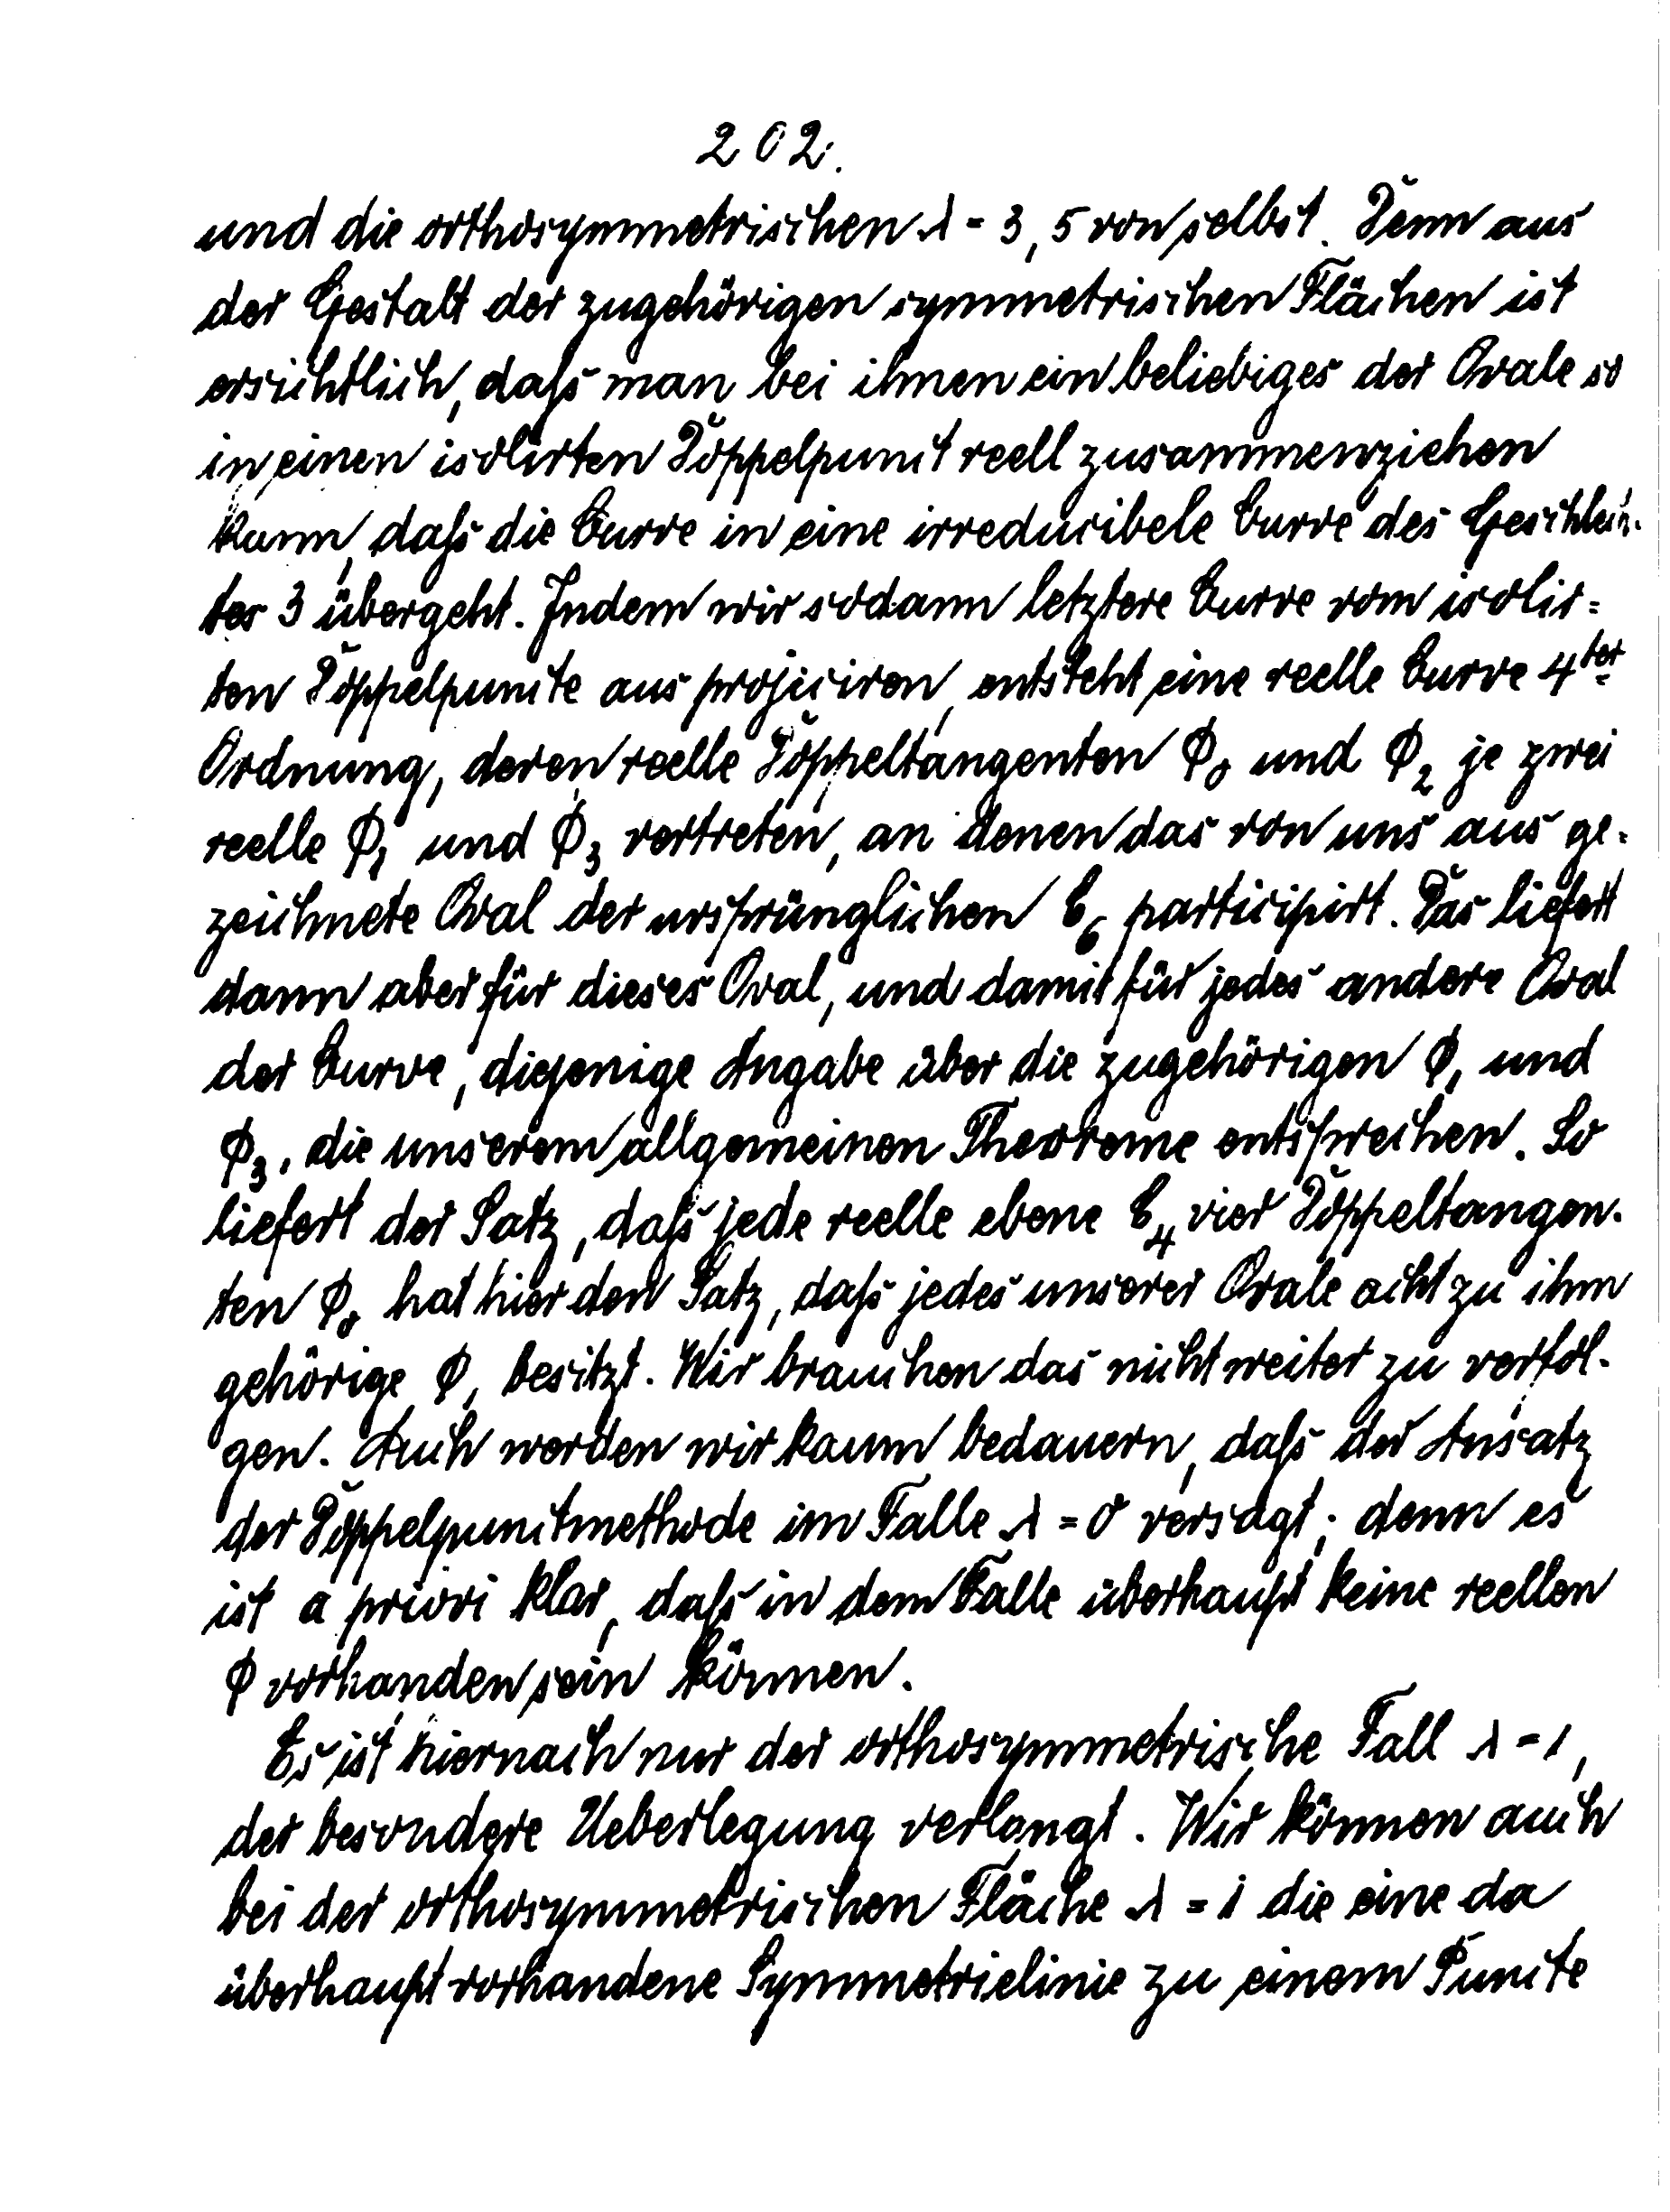 202.
und die orthosymmetrischen λ = 3, 5 von selbst. Denn aus
der Gestalt der zugehörigen symmetrischen Flächen ist
ersichtlich, daſs man bei ihnen ein beliebiges der Ovale so
in einen isolirten Doppelpunct reell zusammenziehen
kann, daſs die Curve in eine irreducibele Curve des Geschlech-
tes 3 übergeht. Indem wir sodann letztere Curve vom isolir=
ten Doppelpuncte aus projiciren, entsteht eine reelle Curve 4ter
Ordnung, deren reelle Doppeltangenten Φ₀ und Φ₂ je zwei
reelle Φ₁ und Φ₃ vertreten, an denen das von uns aus ge=
zeichnete Oval der ursprünglichen C₆ participirt. Das liefert
dann aber für dieses Oval, und damit für jedes andere Oval
der Curve, diejenige Angabe über die zugehörigen Φ₁ und
Φ₃, die unserem allgemeinen Theoreme entsprechen. So
liefert der Satz, daſs jede reelle ebene C₄ vier Doppeltangen-
ten Φ₀ hat hier den Satz, daſs jedes unserer Ovale acht zu ihm
gehörige Φ₁ besitzt. Wir brauchen das nicht weiter zu verfol-
gen. Auch werden wir kaum bedauern, daſs der Ansatz
der Doppelpunctmethode im Falle λ = 0 versagt; denn es
ist a priori klar, daſs in dem Falle überhaupt keine reellen
Φ vorhanden sein können.
Es ist hiernach nur der orthosymmetrische Fall λ = 1,
der besondere Ueberlegung verlangt. Wir können auch
bei der orthosymmetrischen Fläche λ = 1 die eine da
überhaupt vorhandene Symmetrielinie zu einem Puncte